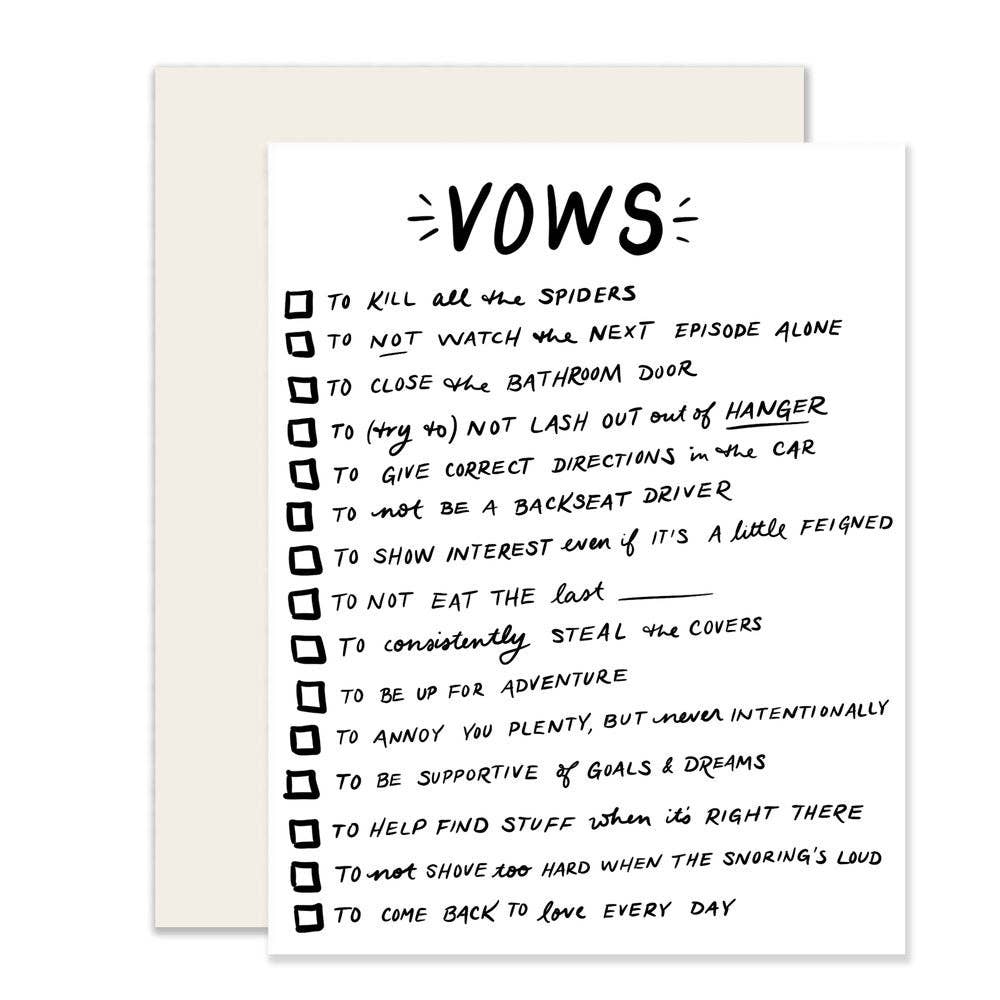 VOWS
TO KILL all the SPIDERS
TO NOT WATCH the NEXT EPISODE ALONE
TO CLOSE the BATHROOM DOOR
TO (try to) NOT LASH OUT out of HANGER
TO GIVE CORRECT DIRECTIONS in the CAR
TO not BE A BACKSEAT DRIVER
TO SHOW INTEREST even if IT'S A little FEIGNED
TO NOT EAT THE last ______
TO consistently STEAL the COVERS
TO BE UP FOR ADVENTURE
TO ANNOY YOU PLENTY, BUT never INTENTIONALLY
TO BE SUPPORTIVE of GOALS & DREAMS
TO HELP FIND STUFF when it's RIGHT THERE
TO not SHOVE too HARD WHEN THE SNORING'S LOUD
TO COME BACK TO love EVERY DAY